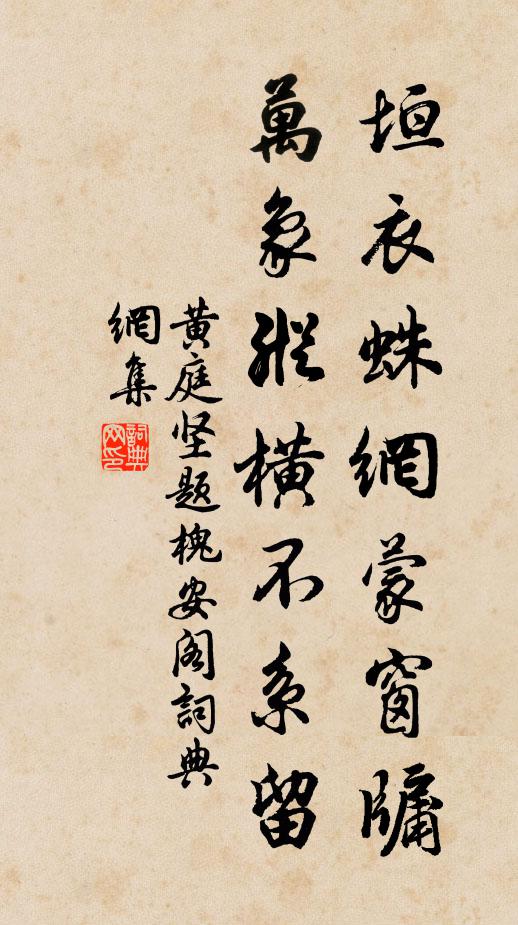 垣衣蛛網蒙窗牖
萬象縱橫不系留
黄庭坚题槐安阁詞典
網集
詞典網印